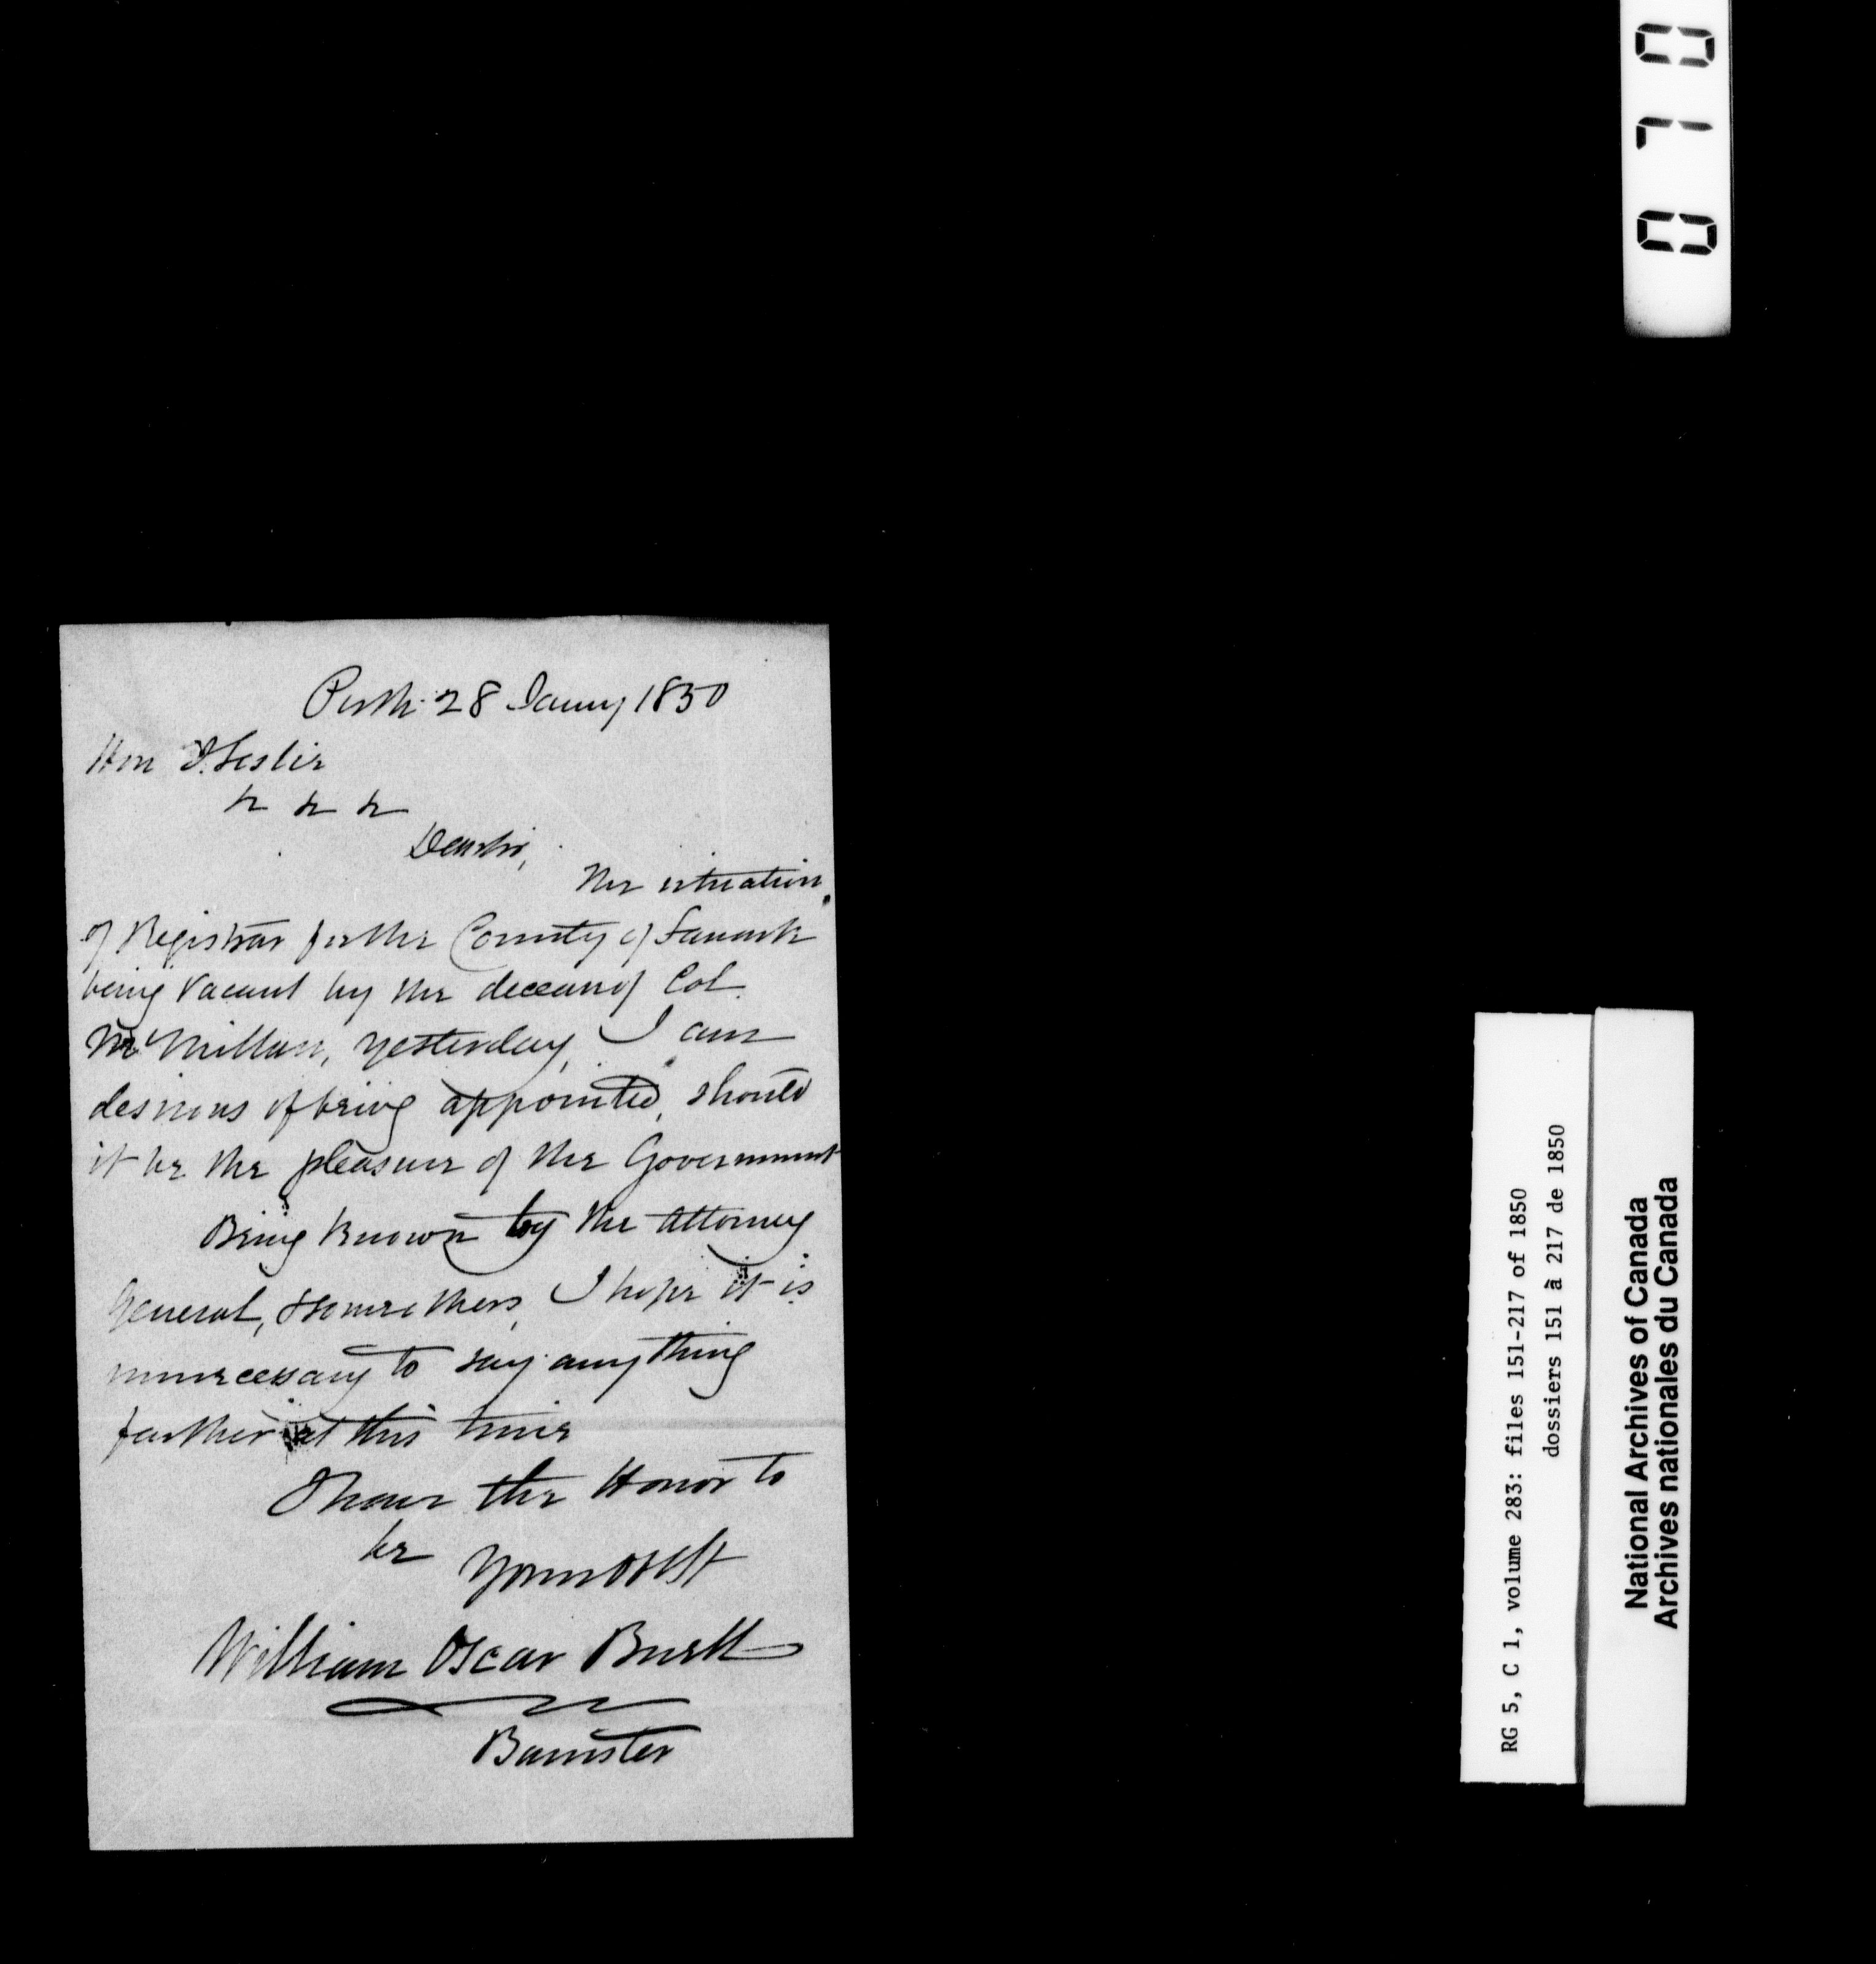 Perth 28 Jany 1850
Hon J. Leslie
&c &c &c
Dear Sir,
The situation
of Registrar for the County of Lanark
being vacant by the decease of Col.
McMillan, yesterday, I am
desirous of being appointed, should
it be the pleasure of the Government
Being known by the Attorney
General, & some others, I hope it is
unnecessary to say any thing
further at this time
I have the Honor to
be Your Obt St
William Oscar Buell
Barrister
0 7 0
RG 5, C 1, volume 283: files 151-217 of 1850
dossiers 151 à 217 de 1850
National Archives of Canada
Archives nationales du Canada